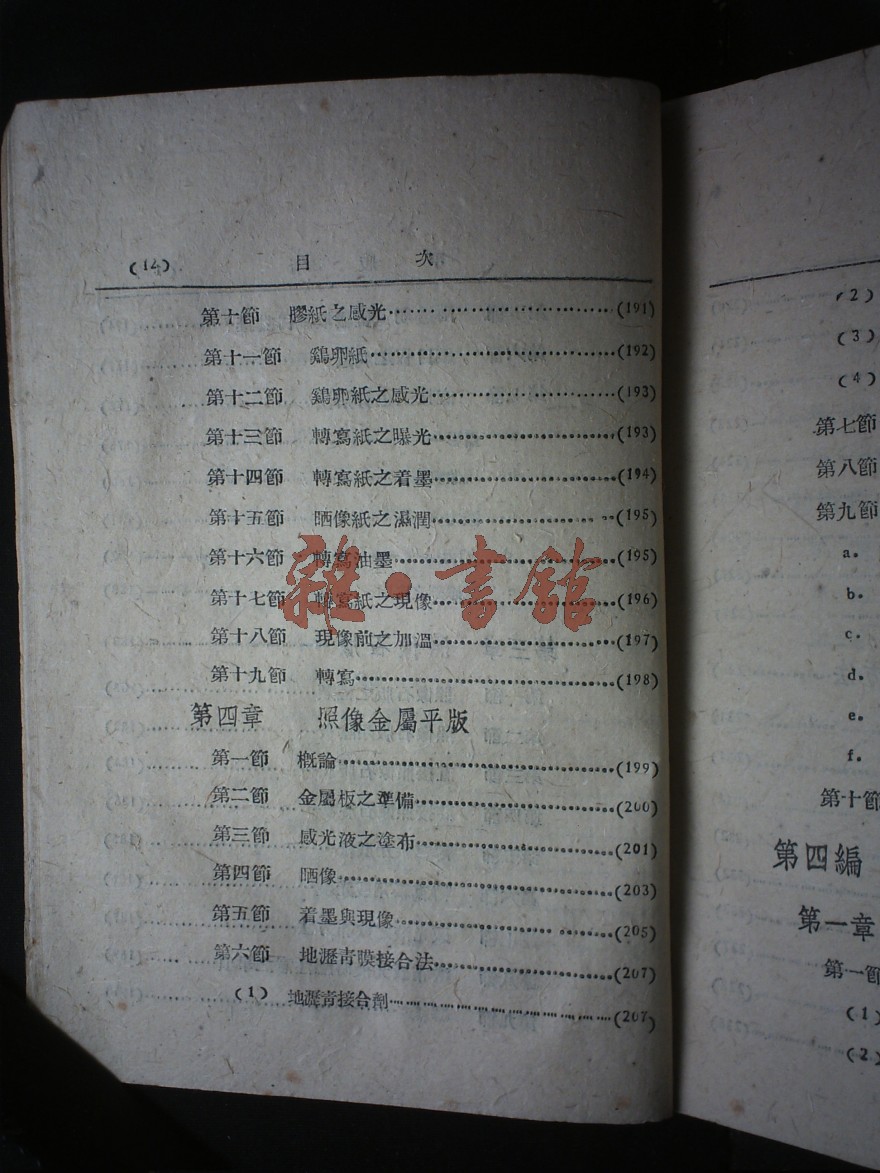 (14) 目 次
第十節 膠紙之感光……………………(191)
第十一節 鷄卵紙……………………(192)
第十二節 鷄卵紙之感光……………………(193)
第十三節 轉寫紙之曝光……………………(193)
第十四節 轉寫紙之着墨……………………(194)
第十五節 晒像紙之濕潤……………………(195)
第十六節 轉寫油墨……………………(195)
第十七節 轉寫紙之現像……………………(196)
第十八節 現像前之加溫……………………(197)
第十九節 轉寫……………………(198)
第四章 照像金屬平版
第一節 概論……………………(199)
第二節 金屬板之準備……………………(200)
第三節 感光液之塗布……………………(201)
第四節 晒像……………………(203)
第五節 着墨與現像……………………(205)
第六節 地瀝青膜接合法……………………(207)
(1) 地瀝青接合劑……………………(207)
雜·書館
(2)
(3)
(4)
第七節
第八節
第九節
a.
b.
c.
d.
e.
f.
第十節
第四編
第一章
第一節
(1)
(2)